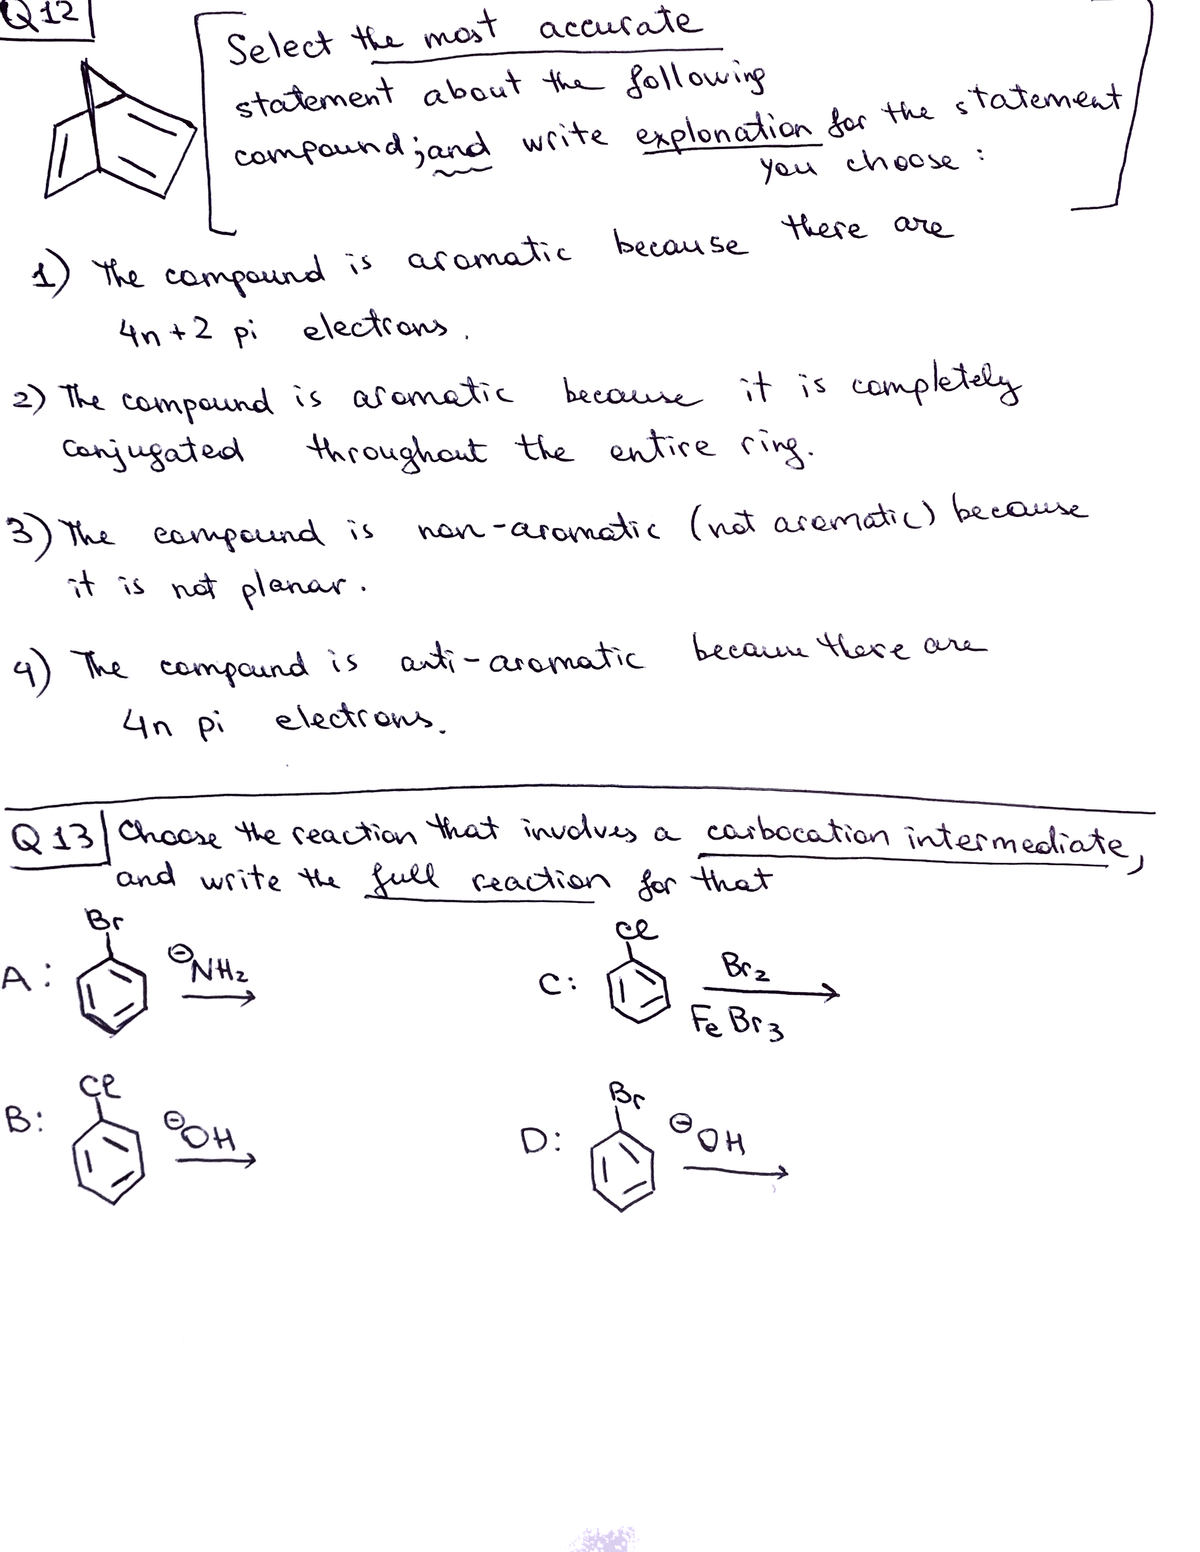 Q12
Select the most accurate
statement about the following
compound; and write explonation for the statement
you choose:
1) The compound is aromatic because there are
4n+2 pi electrons.
2) The compound is aromatic because it is completely
conjugated throughout the entire ring.
3) The compound is non-aromatic (not aromatic) because
it is not planar.
4) The compound is anti-aromatic because there are
4n pi electrons.
Q13 Choose the reaction that involves a carbocation intermediate,
and write the full reaction for that
Br
A: ⊖NH2
Cl
C: Br2
FeBr3
Cl
B: ⊖OH
Br
D: ⊖OH